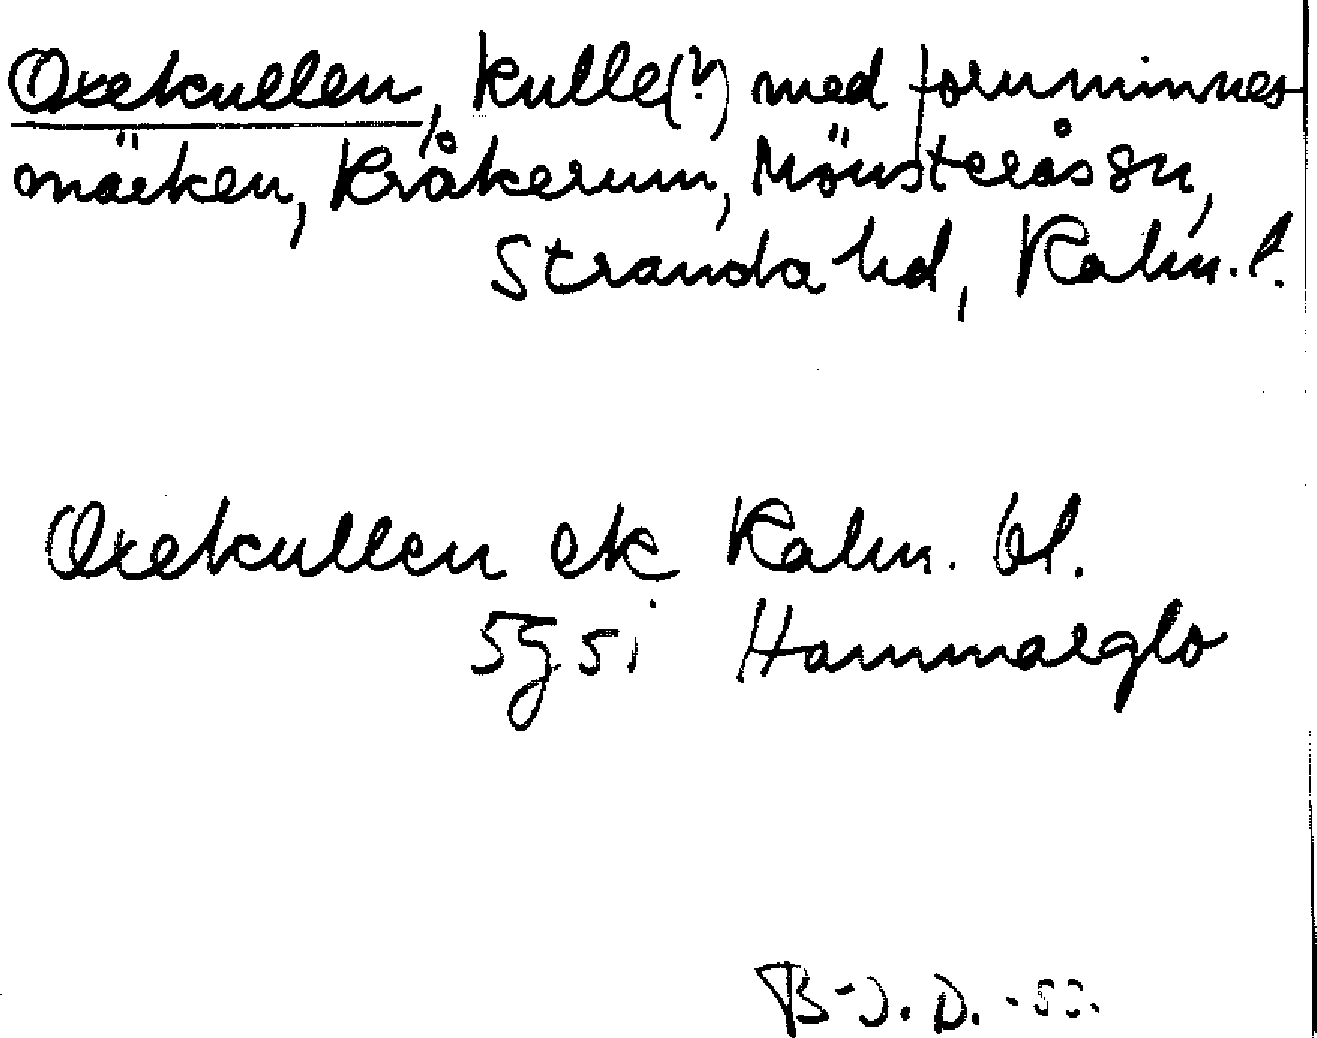 Oxekullen, kulle(?) med fornminnes
märken, Kråkerum, Mönsterås sn,
Stranda hd, Kalm. l.
Oxekullen ek Kalm. bl.
5g5i Hammarglo
B-J. D.